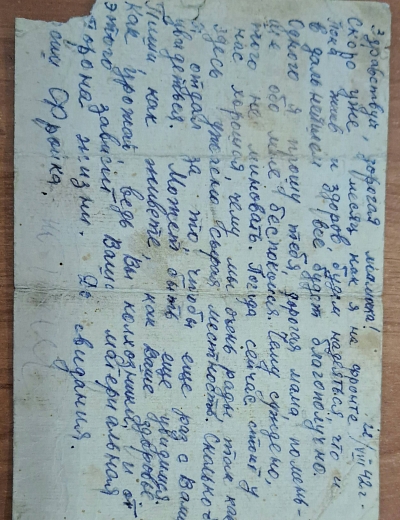 12/VIII 42г.
Здравствуй, дорогая мамочка!
Скоро уже месяц как я на фронте
Пока жив и здоров, будем надеяться, что и
в дальнейшем все будет благополучно.
Одного я прошу тебя, дорогая мама, помень-
ше обо мне беспокойся. Чему суждено,
того не миновать. Погода сейчас стоит у
нас хорошая, чему мы очень рады, так как
здесь ужасно сырая местность. Сколько
отдал за то, чтобы еще раз с Вами
увидеться. Может быть еще увидимся.
Пиши как живете, как Ваше здоровье
как урожай, ведь Вы колхозники и от
этого зависит Ваша материальная
сторона жизни. До свидания.